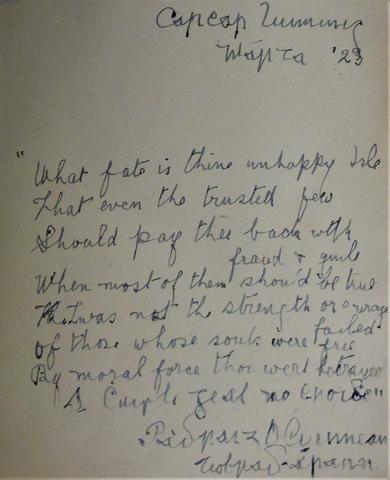 Carcar Luimniġ
Márta '23
"What fate is thine unhappy Isle
That even the trusted few
Should pay thee back with
fraud & guile
When most of them shou'd be true
was not the strength or courage
failed
of those whose souls were free
By moral force thou wert betrayed
A Cuisle geal mo croide"
Pádraig